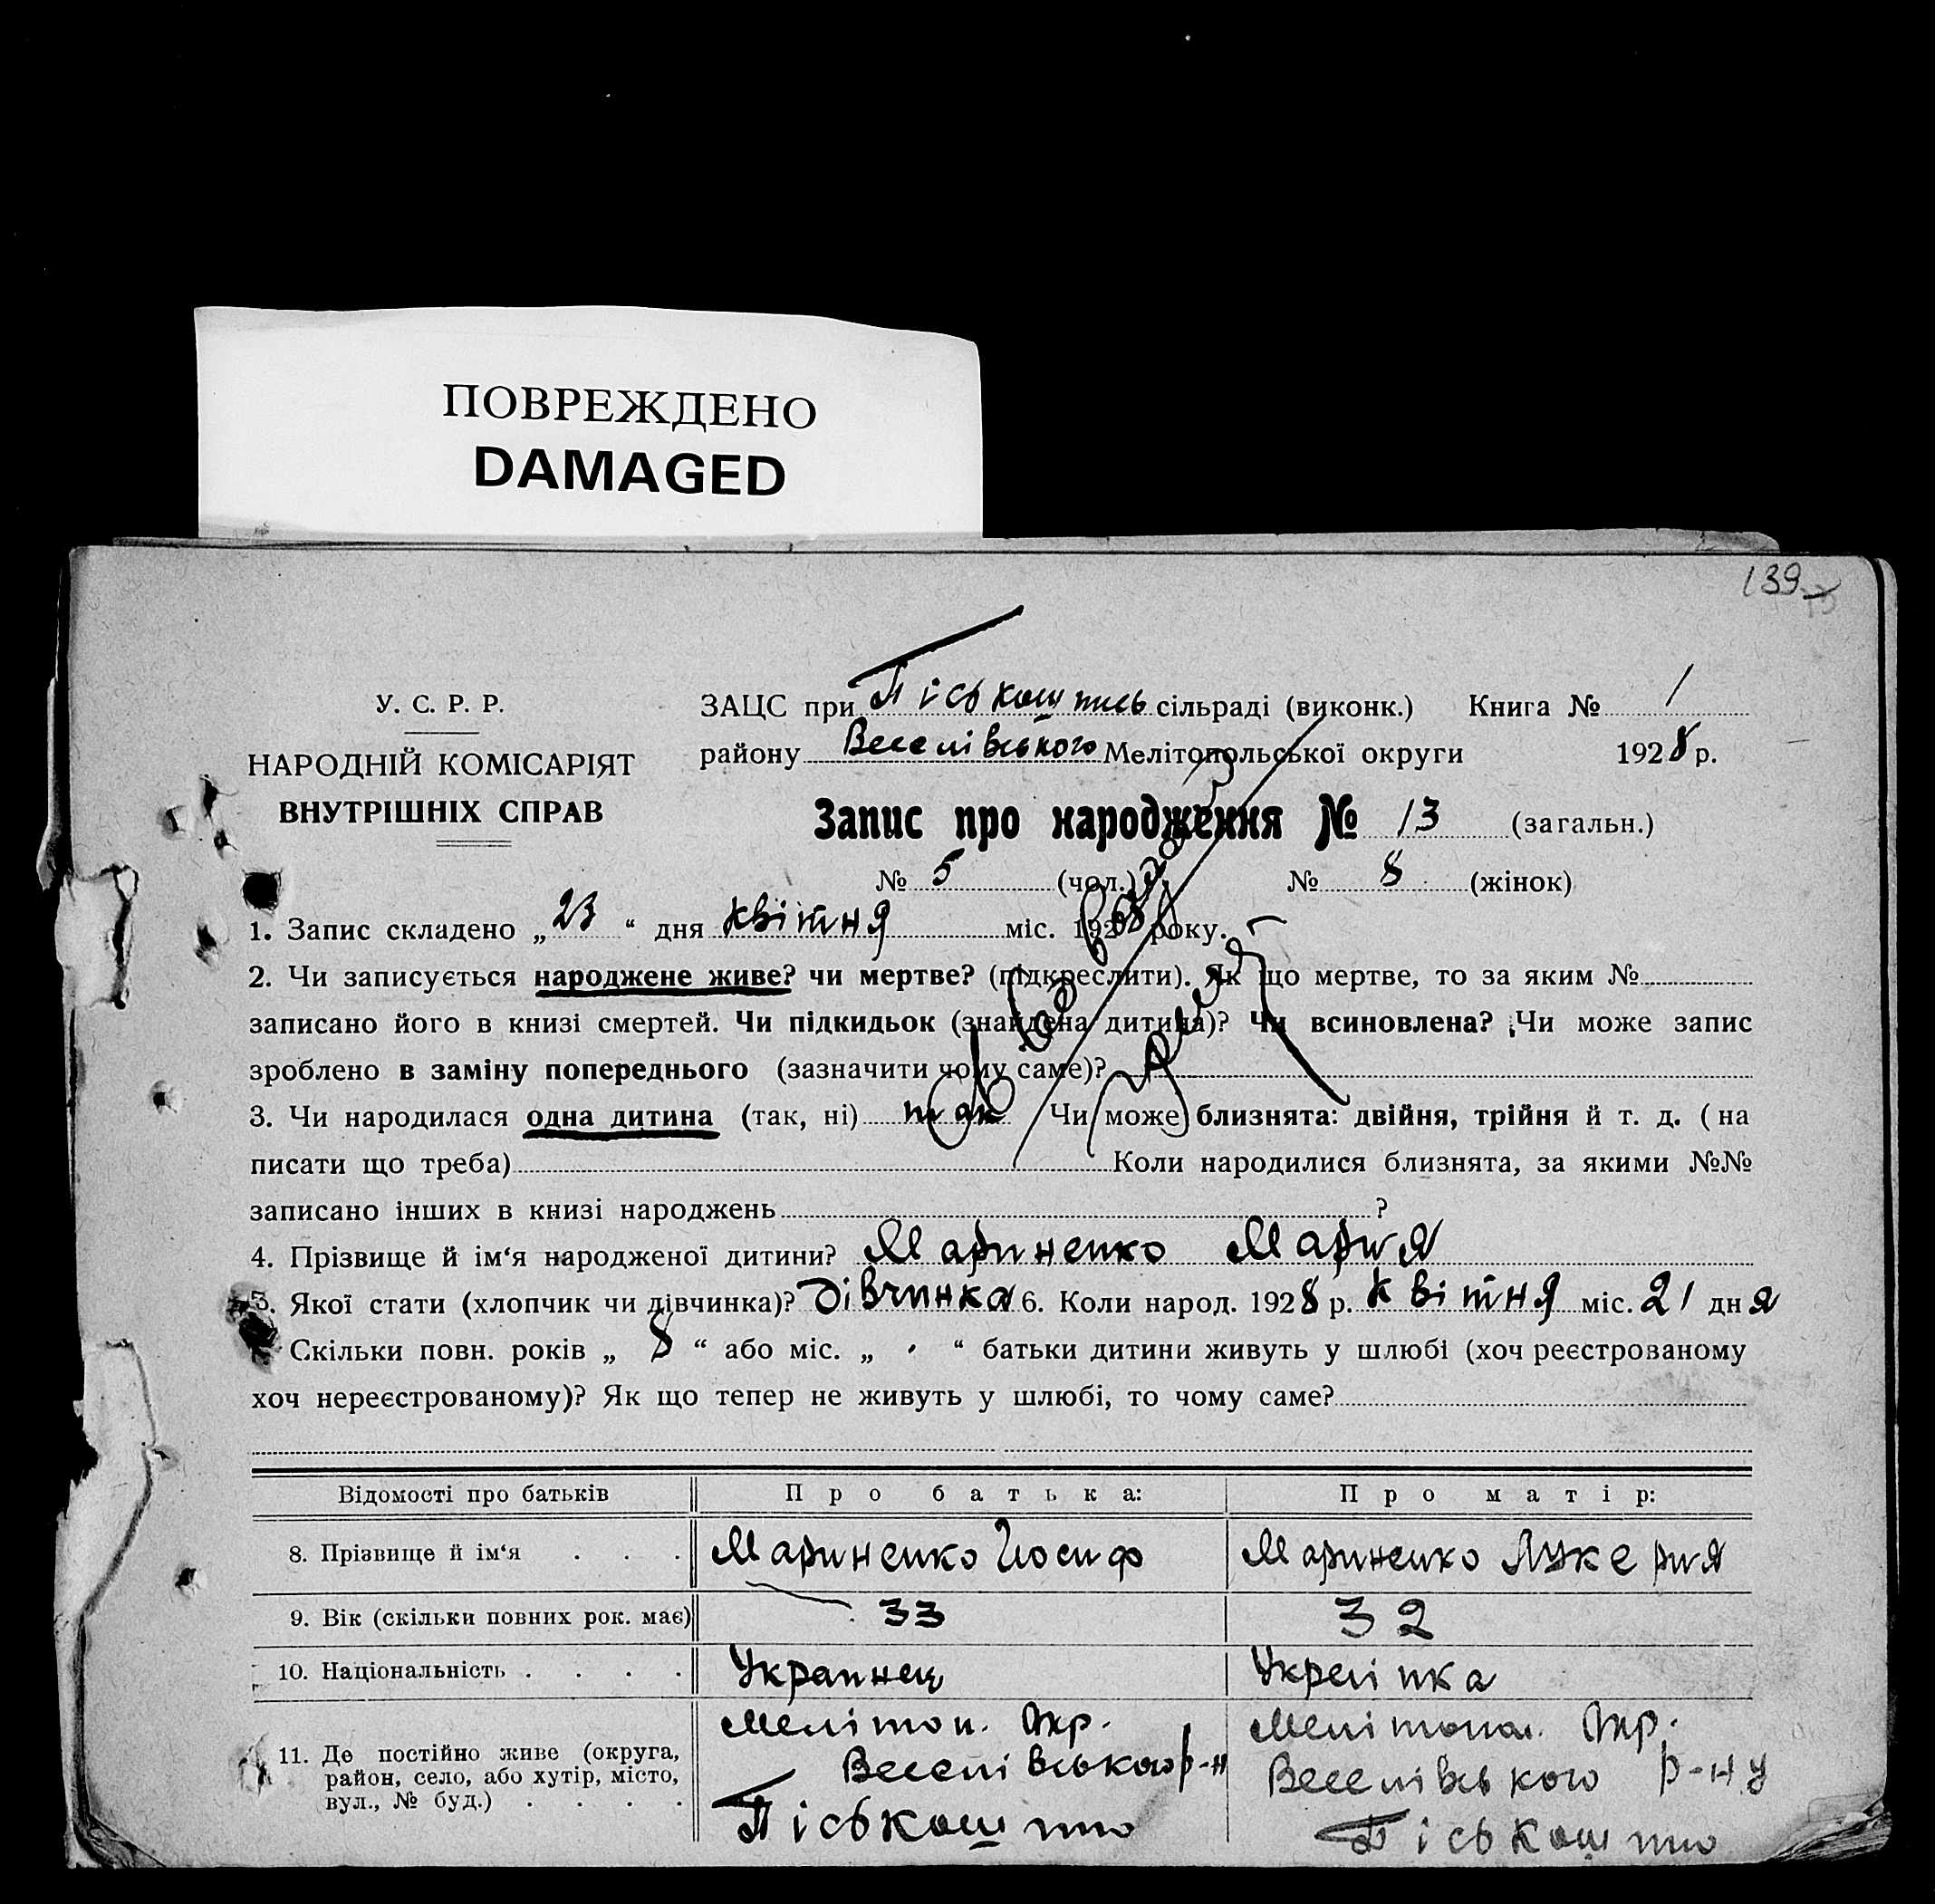 ПОВРЕЖДЕНО
DAMAGED
139
У. С. Р. Р.
НАРОДНІЙ КОМІСАРІЯТ
ВНУТРІШНІХ СПРАВ
ЗАЦС при сільраді (виконк.) Книга № 1
району Веселівського Мелітопольської округи 1928 р.
Запис про народження № 13 (загальн.)
№ 5 (чол.) № 8 (жінок)
1. Запис складено „ 23 “ дня квітня міс. 1928 року.
2. Чи записується народжене живе? чи мертве? (підкреслити). Як що мертве, то за яким №
записано його в книзі смертей. Чи підкидьок (знайдена дитина)? Чи всиновлена? Чи може запис
зроблено в заміну попереднього (зазначити чому саме)?
3. Чи народилася одна дитина (так, ні) так Чи може близнята: двійня, трійня й т. д. (на
писати що треба) Коли народилися близнята, за якими №№
записано інших в книзі народжень ?
4. Прізвище й ім‘я народженої дитини? Мариненко Мария
5. Якої стати (хлопчик чи дівчинка)? Дівчинка 6. Коли народ. 1928 р. квітня міс. 21 дня
Скільки повн. років „ 8 “ або міс. „ “ батьки дитини живуть у шлюбі (хоч реєстрованому
хоч нереєстрованому)? Як що тепер не живуть у шлюбі, то чому саме?
Відомості про батьків Про батька: Про матір:
8. Прізвище й ім‘я . . . Мариненко Йосиф Мариненко Лукерия
9. Вік (скільки повних рок. має) 33 32
10. Національність . . . . Украинец Укреінка
11. Де постійно живе (округа, Мелітоп. Окр. Мелітопол. Окр.
район, село, або хутір, місто, Веселівського р-н Веселівського р-ну
вул., № буд.) . . . . Піськошино Піськошино